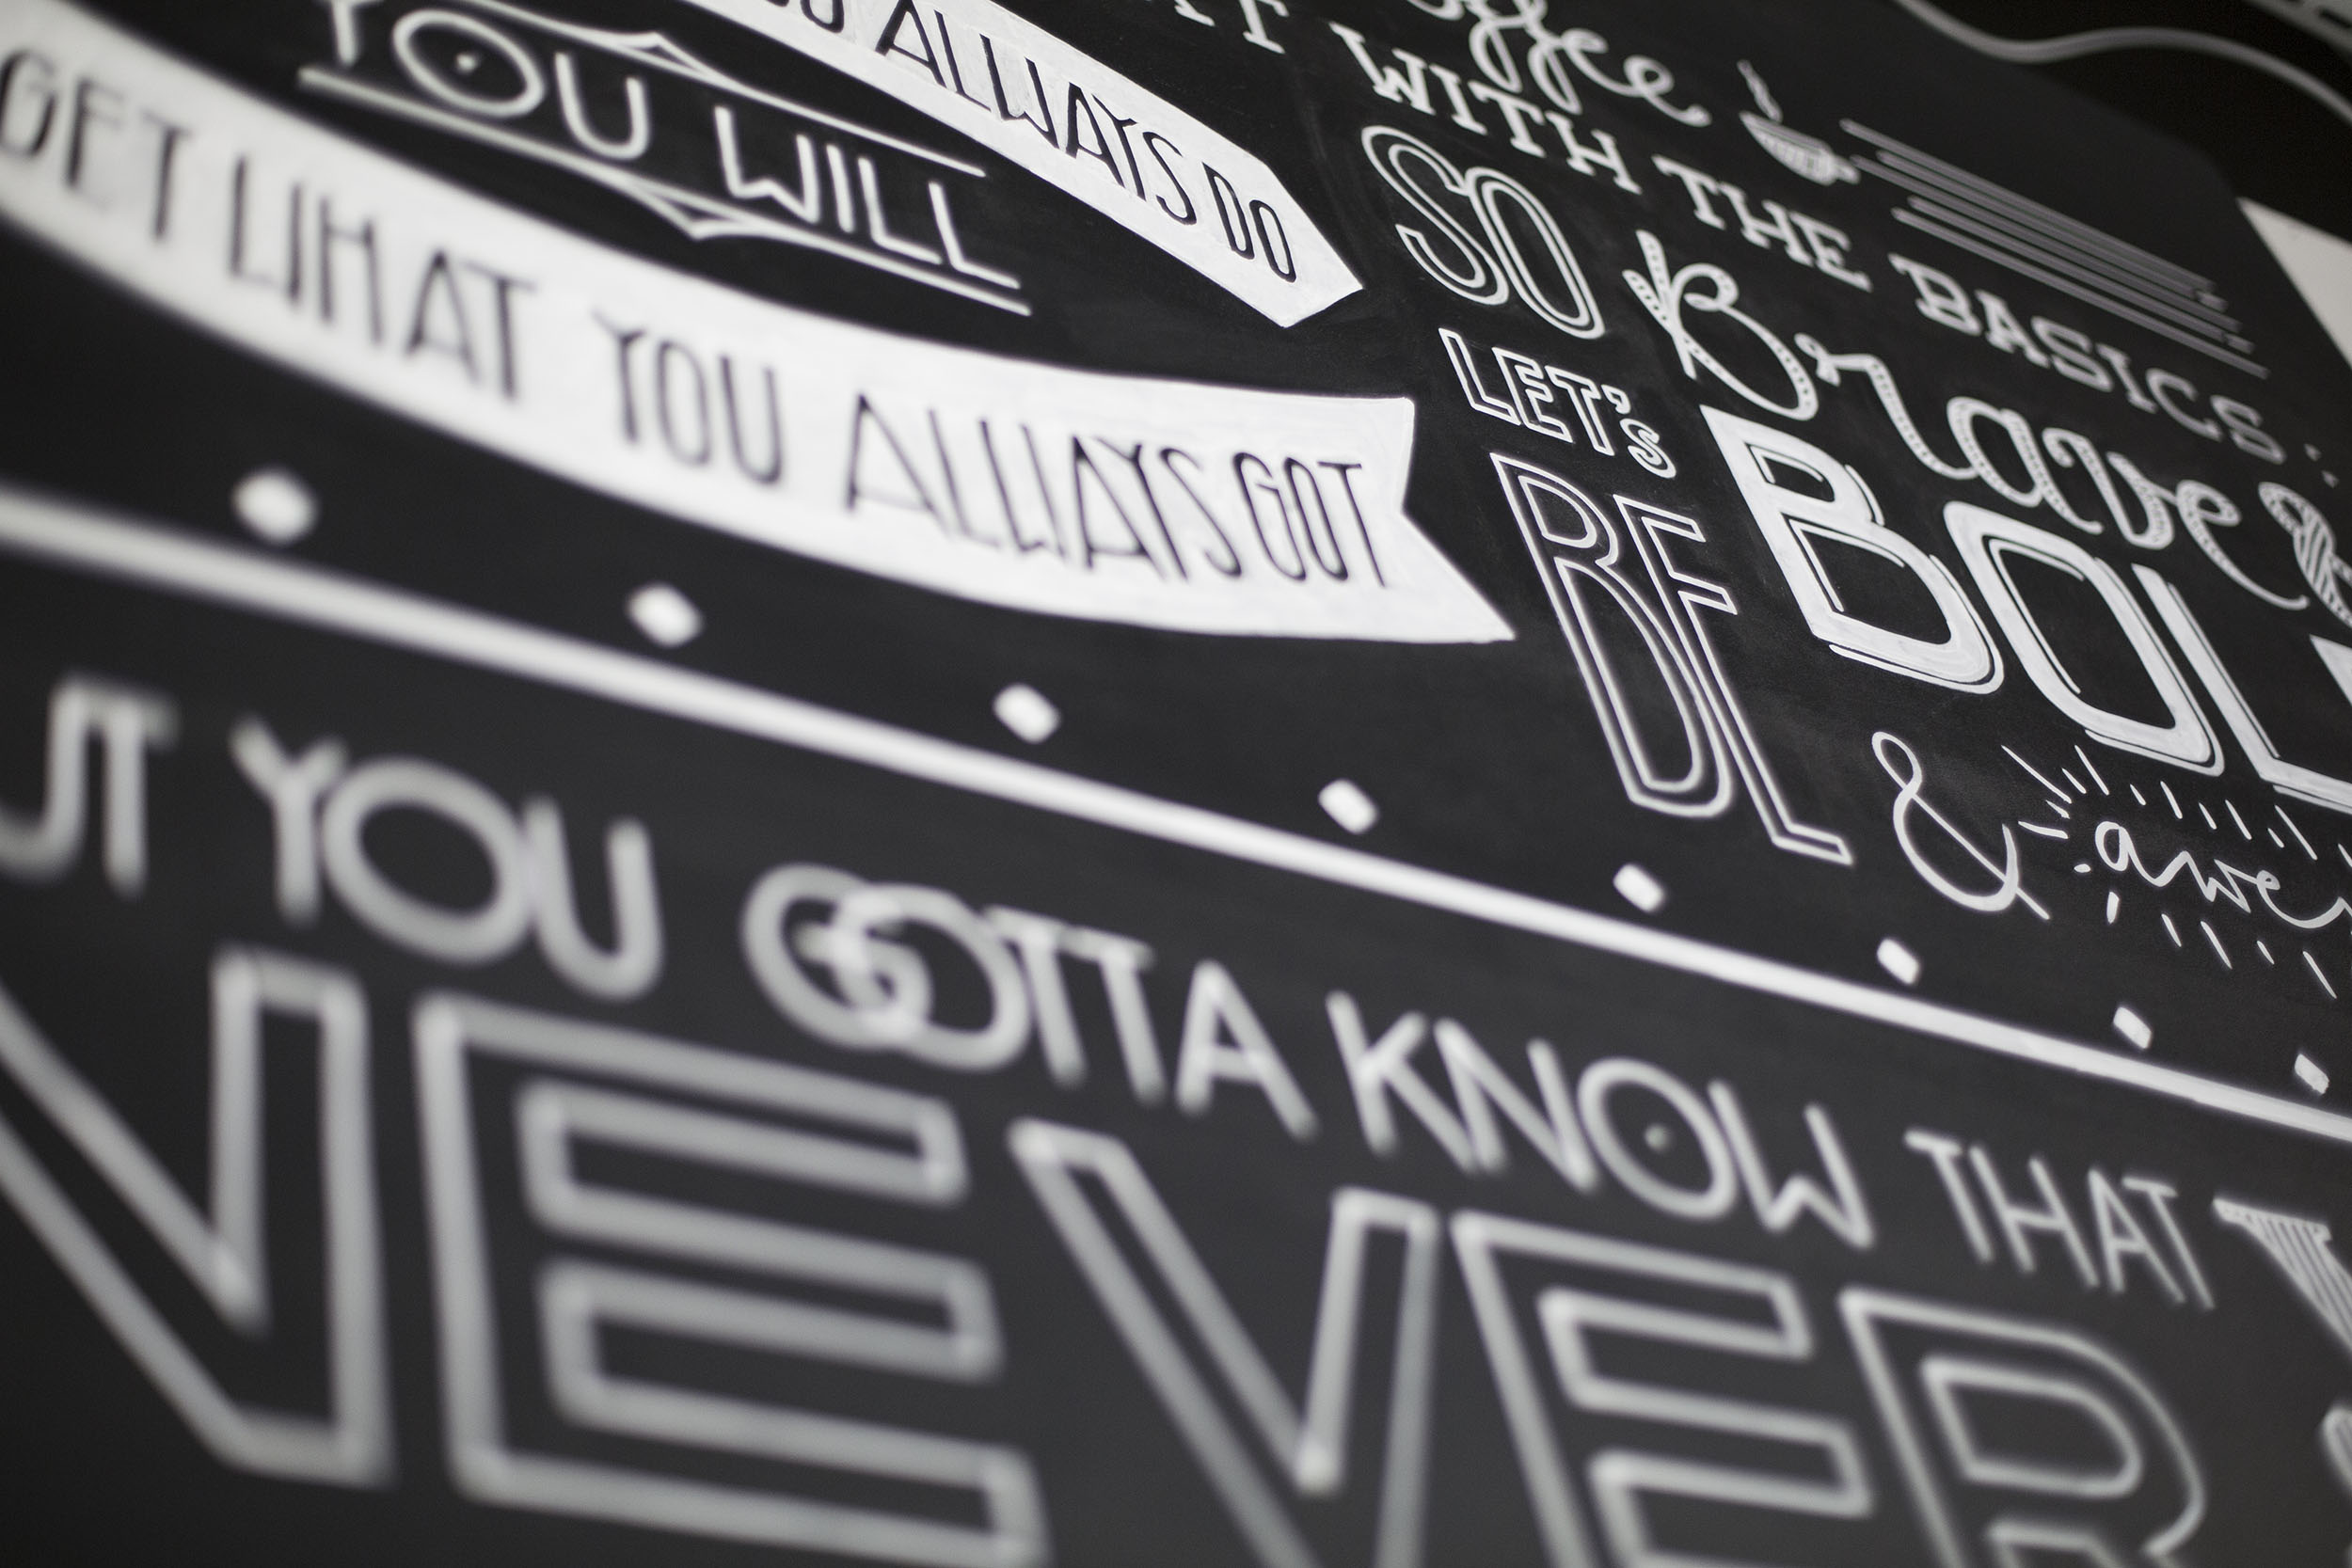 ALWAYS DO
YOU WILL
GET WHAT YOU ALWAYS GOT
WITH THE BASICS
SO Brave
LET'S
BE BOL
& awe
UT YOU GOTTA KNOW THAT
VEVER